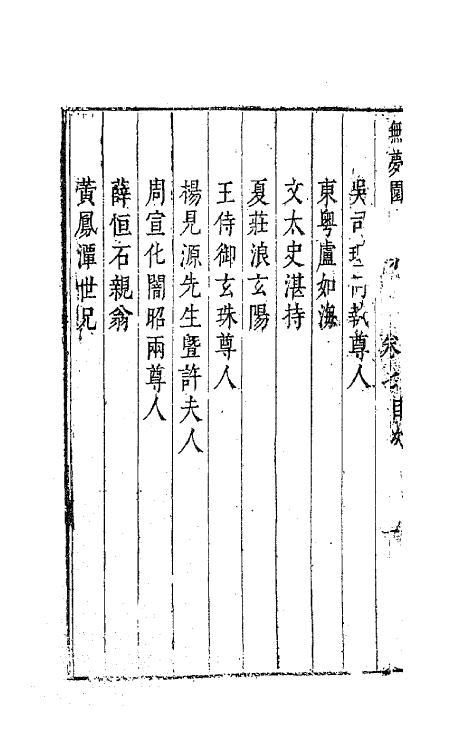 無夢園 卷 目次
吳司理 尊人
東粤盧如海
文太史湛持
夏莊浪玄陽
王侍御玄珠尊人
楊見源先生暨許夫人
周宣化闇昭兩尊人
薛恒石親翁
黃鳳潭世兄